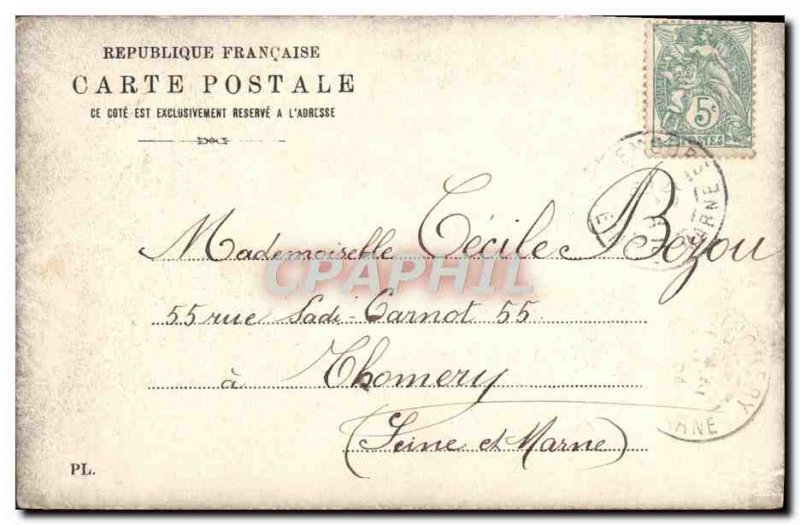 REPUBLIQUE FRANÇAISE
CARTE POSTALE
CE COTÉ EST EXCLUSIVEMENT RESERVÉ A L'ADRESSE
5c
POSTES
MARNE
Mademoiselle Cécile Bozou
CPAPHIL
55 rue Sadi-Carnot 55
à Thomery
(Seine et Marne)
MARNE
PL.